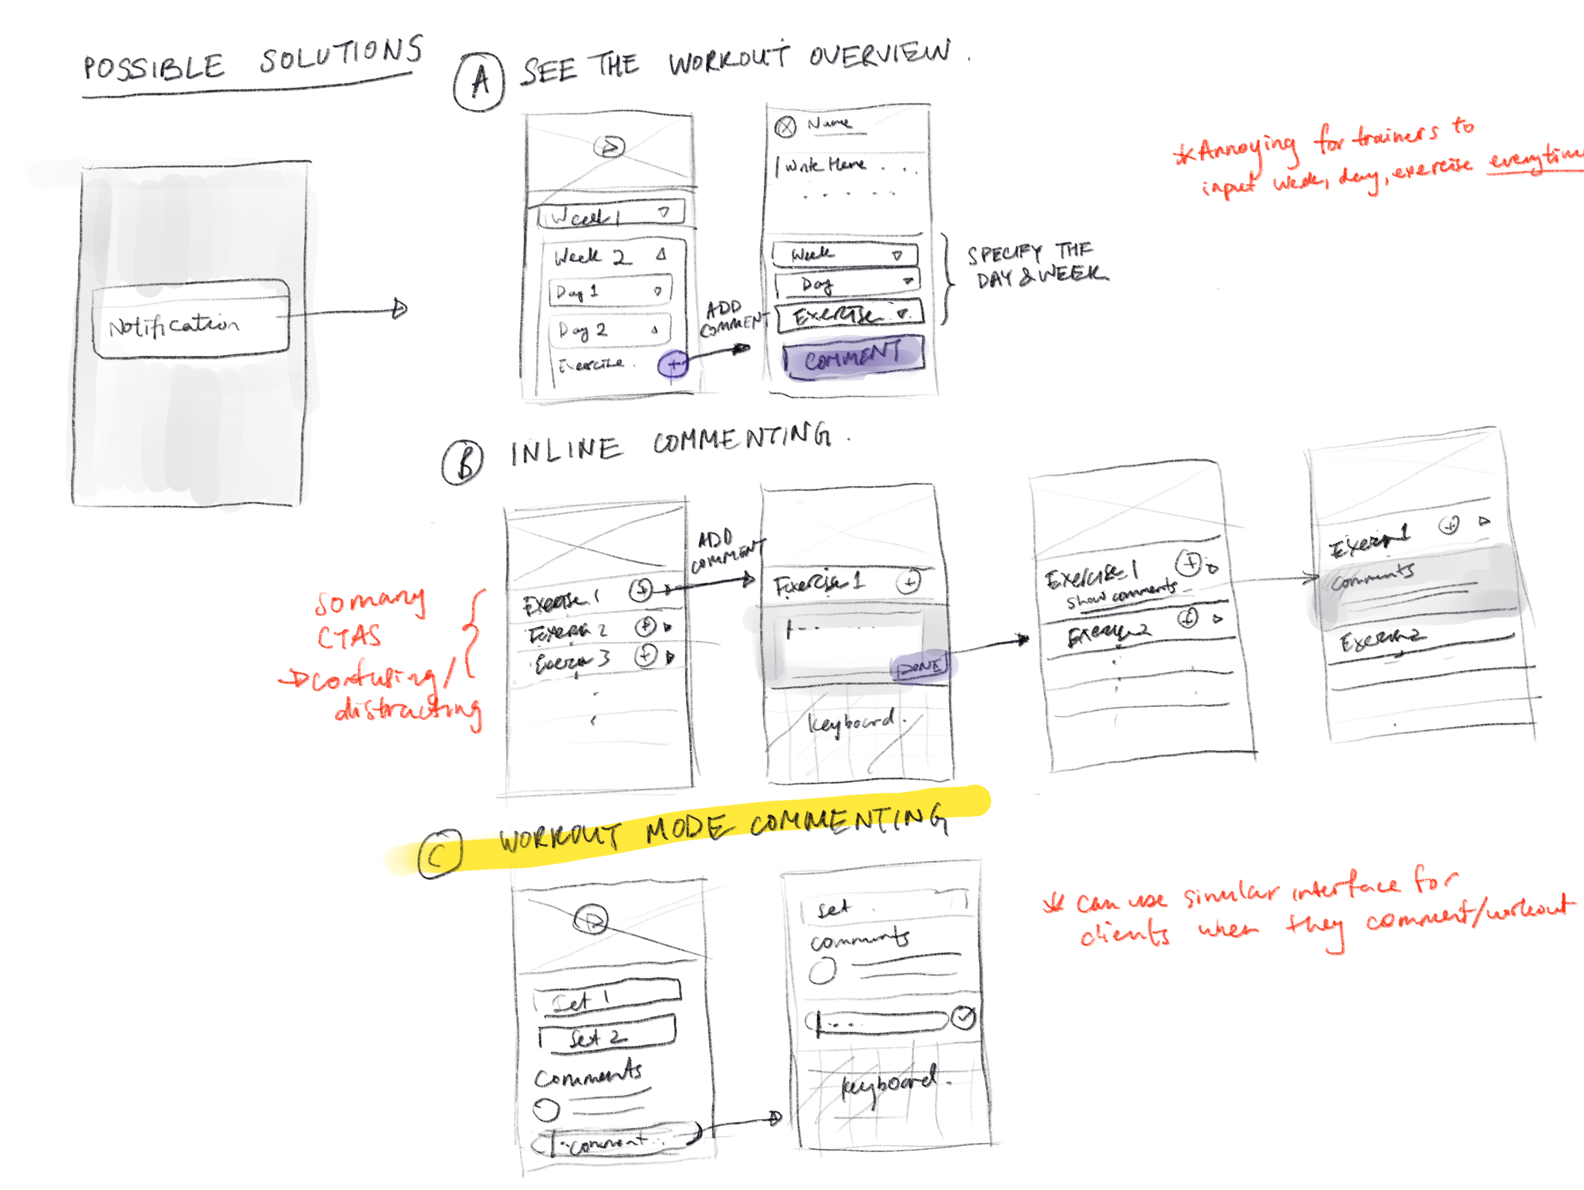 POSSIBLE SOLUTIONS
Notification
A SEE THE WORKOUT OVERVIEW.
Week 1
Week 2
Day 1
Day 2
Exercise.
+
ADD
COMMENT
Name
Write Here . . .
Week
Day
Exercise
COMMENT
SPECIFY THE
DAY & WEEK
*Annoying for trainers to
input week, day, exercise everytime
B INLINE COMMENTING.
So many
CTAS
→ confusing/
distracting
Exercise 1 +
Exercise 2 +
Exercise 3 +
ADD
COMMENT
Exercise 1 +
DONE
Keyboard.
Exercise 1 +
show comments
Exercise 2 +
Exercise 1 +
comments
Exercise 2
C WORKOUT MODE COMMENTING
Set 1
Set 2
Comments
comment...
Set
comments
Keyboard.
* can use similar interface for
clients when they comment/workout